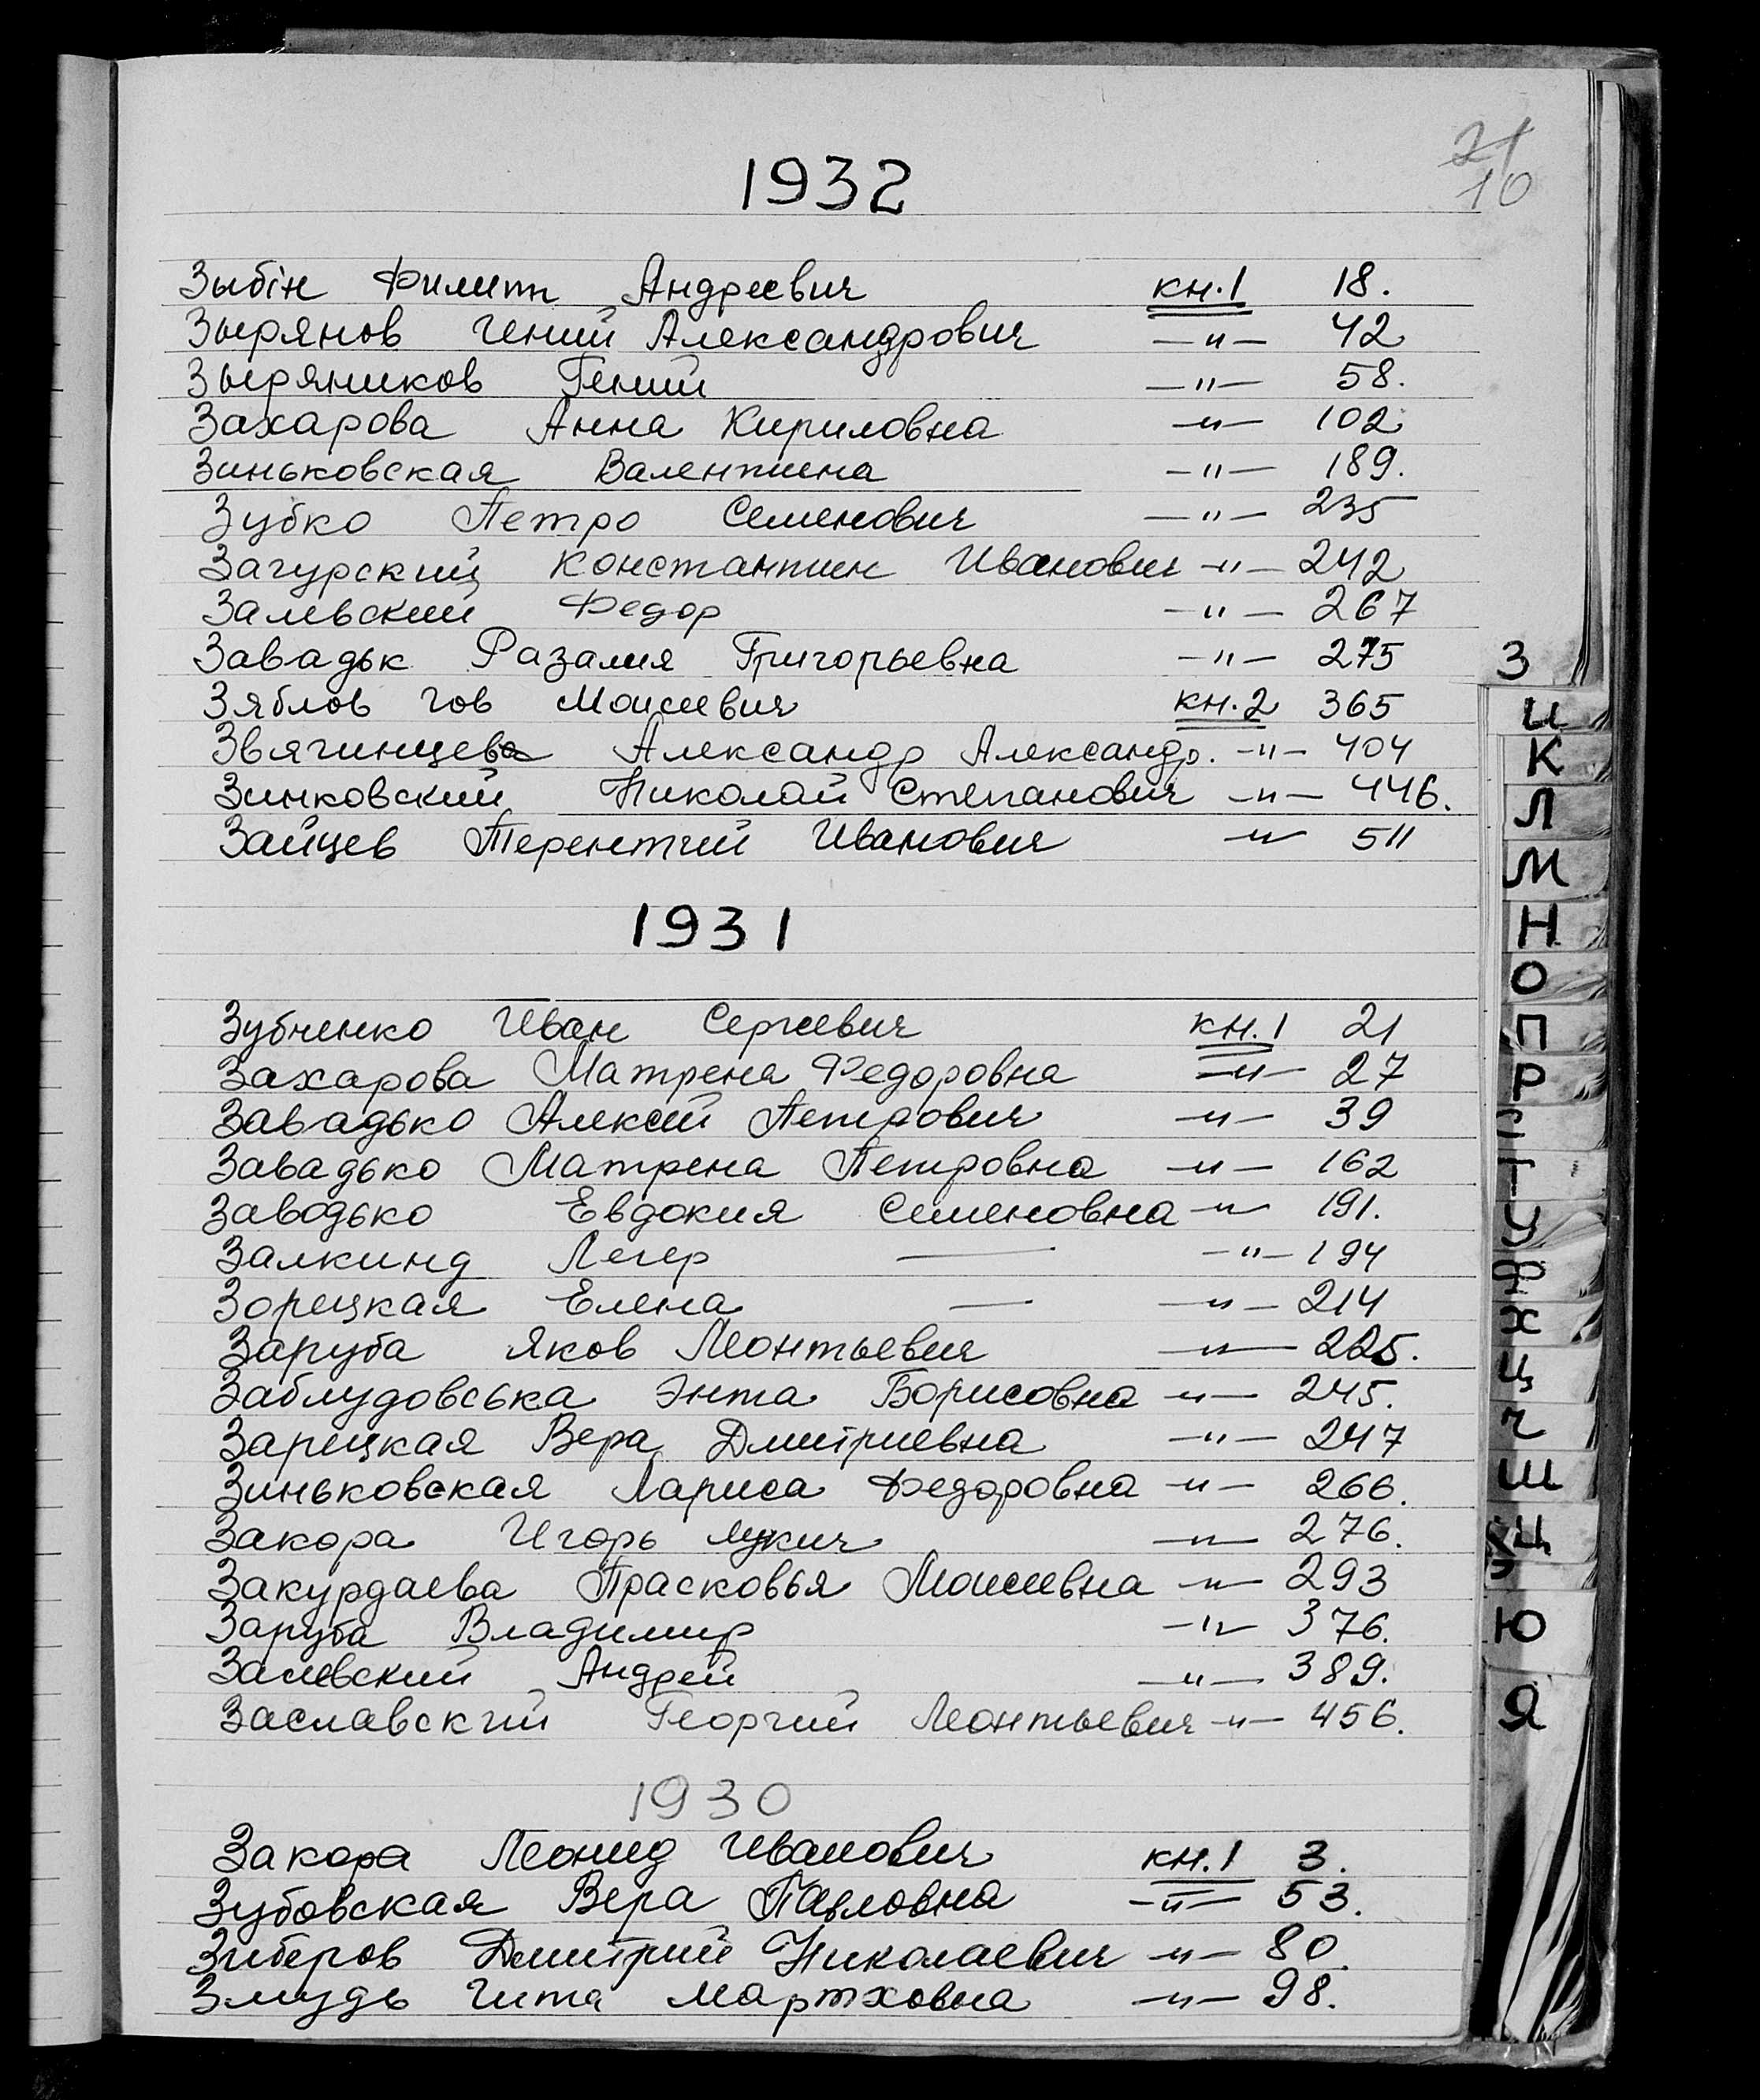 21
10
1932
Зыбін Филипп Андреевич кн.1 18.
Зырянов Гений Александрович —"— 42
Зыряников Гений —"— 58.
Захарова Анна Кириловна —"— 102
Зиньковская Валентина —"— 189.
Зубко Петро Семенович —"— 235
Загурский Константин Иванович —"— 242
Залевский Федор —"— 267
Завадьк Разалия Григорьевна —"— 275
Зяблов Гов Моисеевич кн.2 365
Звягинцев Александр Александр. —"— 404
Зинковский Николай Степанович —"— 446.
Зайцев Терентий Иванович —"— 511
1931
Зубченко Иван Сергеевич кн.1 21
Захарова Матрена Федоровна —"— 27
Завадько Алексей Петрович —"— 39
Завадько Матрена Петровна —"— 162
Заводько Евдокия Семеновна —"— 191.
Залкинд Легер — —"— 194
Зорецкая Елена — —"— 214
Заруба Яков Леонтьевич —"— 225.
Заблудовська Энта Борисовна —"— 245.
Зарецкая Вера Дмитриевна —"— 247
Зиньковская Лариса Федоровна —"— 266.
Закора Игорь Лукич —"— 276.
Закурдаева Прасковья Моисеевна —"— 293
Заруба Владимир —"— 376.
Залевский Андрей —"— 389.
Заславский Георгий Леонтьевич —"— 456.
1930
Закора Леонид Иванович кн.1 3.
Зубовская Вера Павловна —"— 53.
Зиберов Дмитрий Николаевич —"— 80.
Змудь Гита Мартховна —"— 98.
З
И
К
Л
М
Н
О
П
Р
С
Т
У
Ф
Х
Ц
Ч
Ш
Щ
Э
Ю
Я